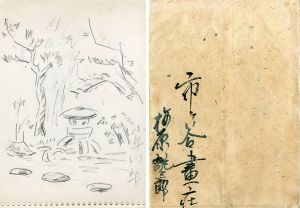 市ヶ谷畫荘
梅原龍三郎